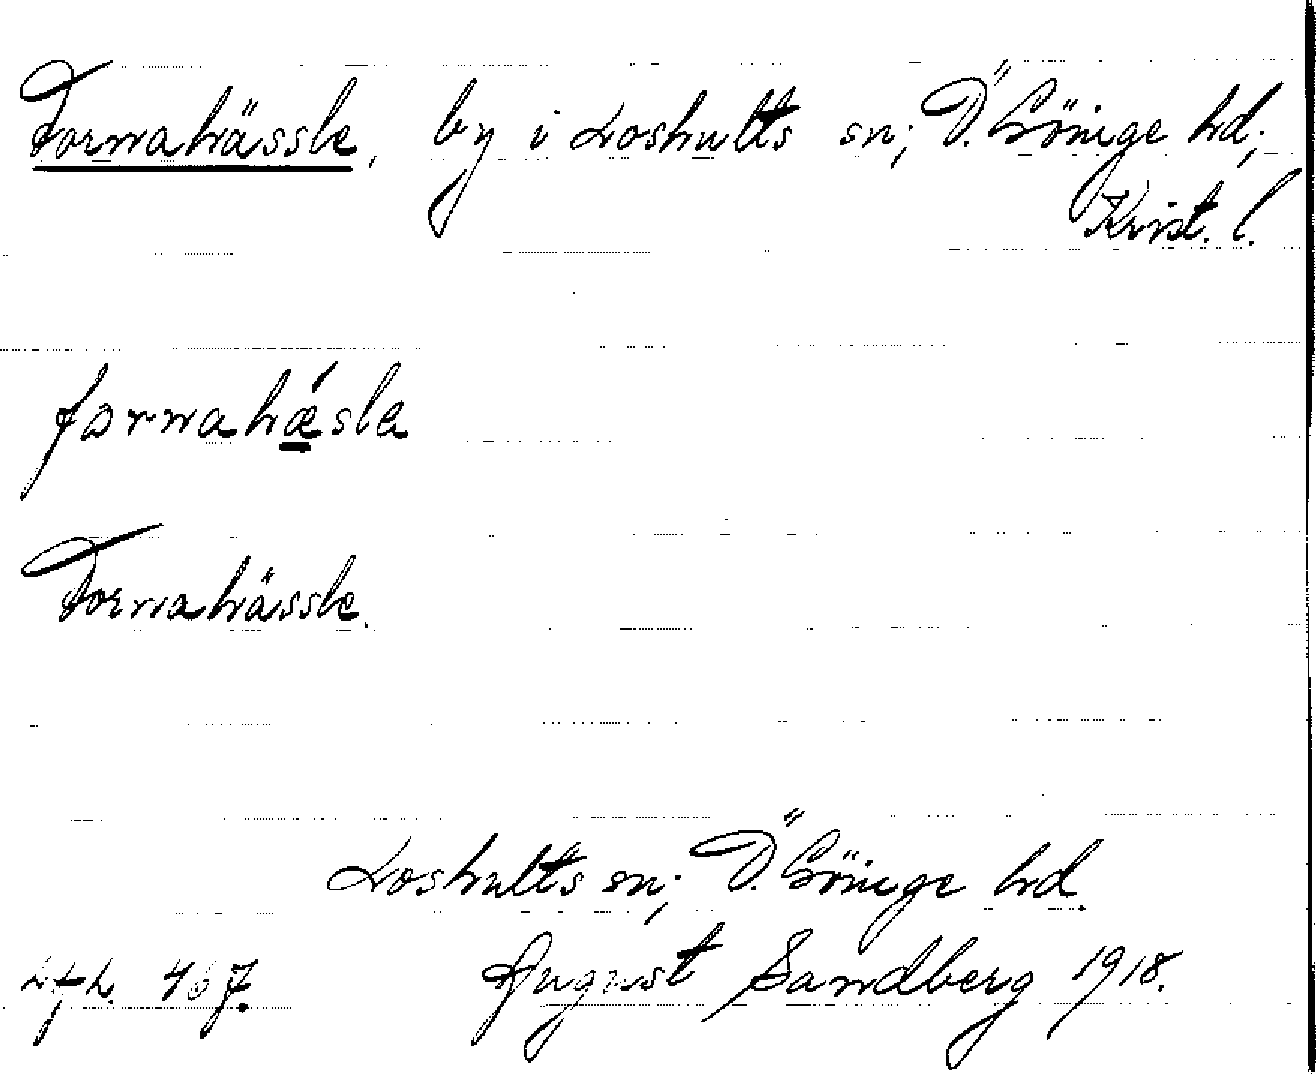 Fornahässle, by i Loshults sn; Ö. Göinge hd;
Krist. l.
fornahæsla
Fornahässle.
Loshults sn; Ö. Göinge hd.
467. August Sandberg 1918.